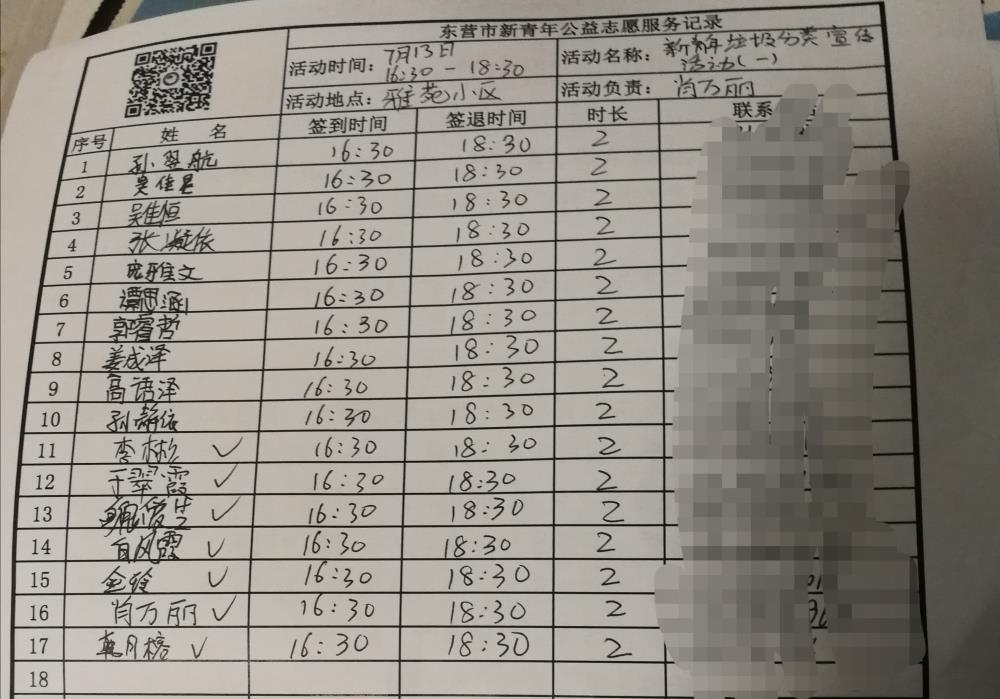 东营市新青年公益志愿服务记录
活动时间: 7月13日 16:30-18:30 活动名称: 新青年垃圾分类宣传活动(一)
活动地点: 雅苑小区 活动负责: 肖万丽
序号 姓名 签到时间 签退时间 时长 联系
1 孙翌航 16:30 18:30 2
2 吴佳星 16:30 18:30 2
3 吴佳恒 16:30 18:30 2
4 张凝依 16:30 18:30 2
5 雅文 16:30 18:30 2
6 谭思涵 16:30 18:30 2
7 郭睿哲 16:30 18:30 2
8 姜成泽 16:30 18:30 2
9 高语泽 16:30 18:30 2
10 孙静依 16:30 18:30 2
11 李彬 ✓ 16:30 18:30 2
12 于翠霞 ✓ 16:30 18:30 2
13 ✓ 16:30 18:30 2
14 白风霞 ✓ 16:30 18:30 2
15 金玲 ✓ 16:30 18:30 2
16 肖万丽 ✓ 16:30 18:30 2
17 月榕 ✓ 16:30 18:30 2
18